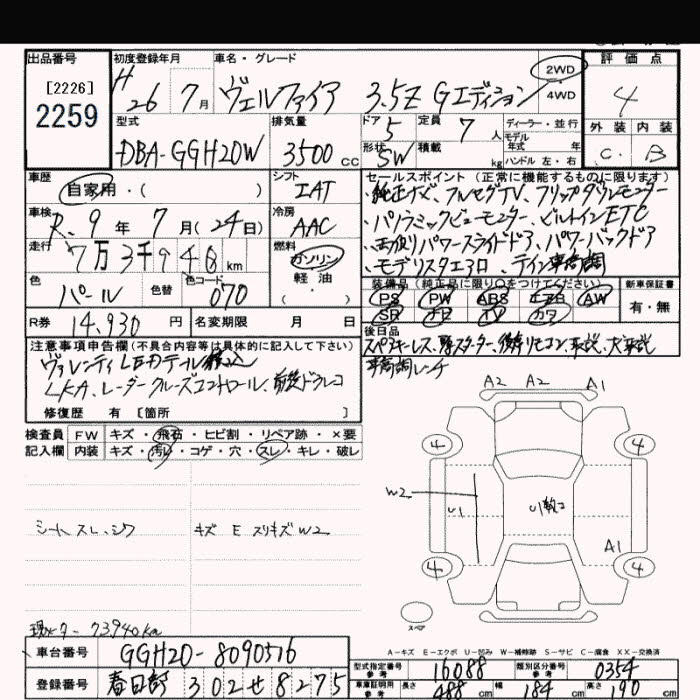 出品番号 初度登録年月 車名・グレード 評価点
[2226]
2259
H 26 7月 ヴェルファイア 3.5Z Gエディション 2WD 4WD 4
型式 排気量 ドア 定員 ディーラー・並行 外装 内装
DBA-GGH20W 3500 cc 5 7人 モデル年式 年
形状 SW 積載 kg ハンドル 左・右 C B
車歴 シフト セールスポイント (正常に機能するものに限ります)
自家用・( ) IAT ・純正ナビ、フルセグTV、フリップダウンモニター
車検 冷房 ・パノラミックビューモニター、ビルトインETC
R.9年7月(24日) AAC ・両側パワースライドドア、パワーバックドア
走行 燃料 ・モデリスタエアロ、テイン車高調
7万3千940km ガソリン
軽油
( )
色 色替 色コード 装備品 (純正品に限り○をつけてください) 新車保証書
パール 070 PS PW ABS エアB AW 有・無
SR ナビ TV カワ
R券 14,930円 名変期限 月 日 後日品
スペアキーレス、
注意事項申告欄 (不具合内容等は具体的に記入して下さい)
ヴァレンティLEDテール
車高調レンチ
LKA、レーダークルーズコントロール、前後ドラレコ
修復歴 有 [箇所 ]
検査員 FW キズ・飛石・ヒビ割・リペア跡・×要
記入欄 内装 キズ・汚レ・コゲ・穴・スレ・キレ・破レ
A2 A2 A1
4 4
W2 U1
シートスレ、シワ キズ E スリキズ W2
A1
4 4
スペア
現メーター 73940km
A-キズ E-エクボ U-凹み W-補修跡 S-サビ C-腐食 XX-交換済
車台番号 GGH20-8090516
型式指定番号 参考 16088 類別区分番号 参考 0354
登録番号 春日部 302 せ 8275
車庫証明用 参考 長さ 488 cm 幅 184 cm 高さ 90 cm